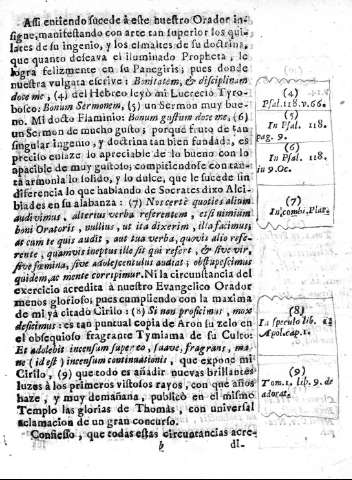 Assi entiendo sucede à este nuestro Orador in-
signe, manifestando con arte tan superior los qui-
lates de su ingenio, y los esmaltes de su doctrina,
que quanto deseava el iluminado Propheta, le
logra felizmente en su Panegiris; pues donde
nuestra vulgata escrive: Bonitatem, & disciplinam
doce me, (4) del Hebreo leyò mi Lucrecio Tyro-
bosco: Bonum Sermonem, (5) un Sermon muy bue-
no. Mi docto Flaminio: Bonum gustum doce me, (6)
un Sermon de mucho gusto; porque fruto de tan
singular ingenio, y doctrina tan bien fundada, es
precisо enlaze lo apreciable de lo bueno con lo
apacible de muy gustoso; compitiendose con tan-
ta armonia lo solido, y lo dulce, que le sucede sin
diferencia lo que hablando de Socrates dixo Alci-
biades en su alabanza: (7) Nos certè quoties alium
audivimus, alterius verba referentem, etsi nimium
boni Oratoris, nullius, ut ita dixerim, illa facimus;
at cum te quis audit, aut tua verba, quovis alio refe-
rente, quamvis ineptus ille sit qui refert, & sive vir,
sive fœmina, sive adolescentulus audiat; obstupescimus
quidem, ac mente corripimur. Ni la circunstancia del
exercicio acredita à nuestro Evangelico Orador
menos glorioso; pues cumpliendo con la maxima
de mi yà citado Cirilo: (8) Si non proficimus, mox
deficimus: es tan puntual copia de Aron su zelo en
el obsequioso fragrante Tymiama de su Culto:
Et adolebit incensum super eo, suave, fragrans, manè
(id est) incensum continuationis, que expone mi
Cirilo, (9) que todo es añadir nuevas brillantes
luzes à los primeros vistosos rayos, con que años
haze, y muy demañana, publicò en el mismo
Templo las glorias de Thomàs, con universal
aclamacion de un gran concurso.
Confiesso, que todas estas circunstancias acre-
b
di-
(4)
Psal. 118. v. 66.
(5)
In Psal. 118.
pag. 9.
(6)
In Psal. 118.
in 9. Oc.
(7)
In combi. Plat.
(8)
In speculo lib.
Apol. cap. 1.
(9)
Tom. 1. lib. 9. de
adorat.